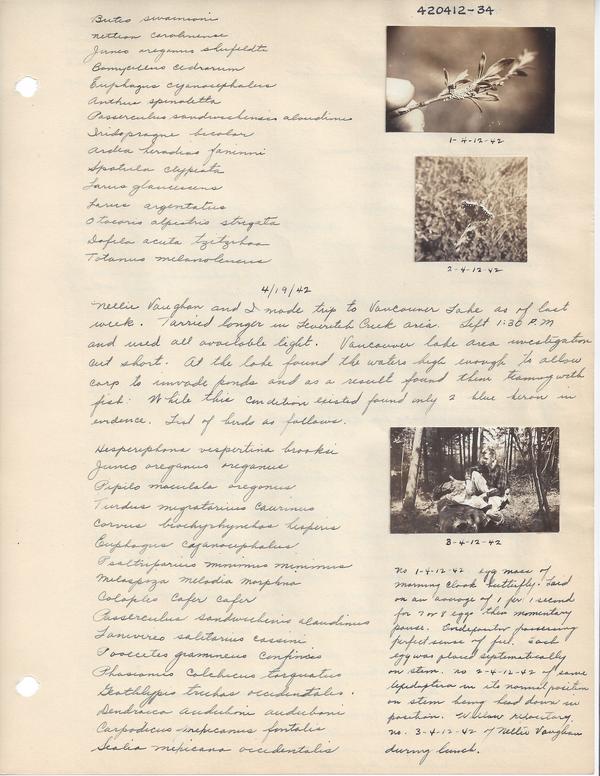 420412-34
Buteo swainsoni
nettion carolinense
Junco oreganus shufeldti
Bombycilla cedrorum
Euphagus cyanocephalus
Anthus spinoletta
Passerculus sandwichensis alaudinus
Iridoprogne bicolor
Ardea herodias fannini
Spatula clypeata
Larus glaucescens
Larus argentatus
Otocoris alpestris strigata
Dafila acuta tzitzihoa
Totanus melanoleucus
1-4-12-42
2-4-12-42
4/19/42
Nellie Vaughan and I made trip to Vancouver Lake as of last
week. Tarried longer in Creek area. Left 1:30 P.M
and used all available light. Vancouver lake area investigation
cut short. At the lake found the waters high enough to allow
carp to invade ponds and as a result found them teaming with
fish. While this condition existed found only 2 blue heron in
evidence. List of birds as follows.
Hesperiphona vespertina brooksi
Junco oreganus oreganus
Pipilo maculata oregonus
Turdus migratorius caurinus
Corvus brachyrhynchos hesperis
Euphagus cyanocephalus
Psaltriparius minimus minimus
Melospoza melodia morphna
Colaptes cafer cafer
Passerculus sandwichensis alaudinus
Lanivireo solitarius cassini
Pooecetes gramineus confinis
Phasianus colchicus torquatus
Geothlypis trichas occidentalis.
Dendroica auduboni auduboni
Carpodicus mexicanus fontalis
Sialia mexicana occidentalis
3-4-12-42
no 1-4-12-42 egg mass of
morning cloak butterfly. Laid
on an average of 1 per 1 second
for 7 or 8 eggs then momentary
pause. Ovidepositor possessing
perfect sense of feel. Each
egg was placed systematically
on stem. no 2-4-12-42 of same
lepidoptera in its normal position
on stem being head down in
position. Willow
no. 3-4-12-42 of Nellie Vaughan
during lunch.